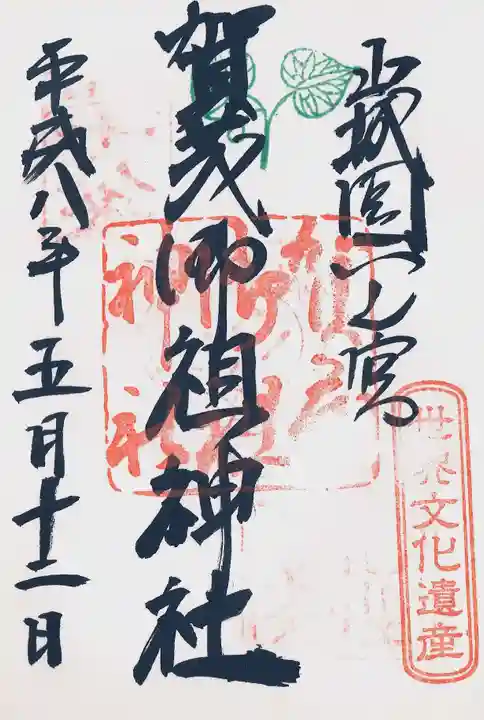 山城國一之宮
賀茂御祖神社
平成八年五月十二日
世界文化遺産